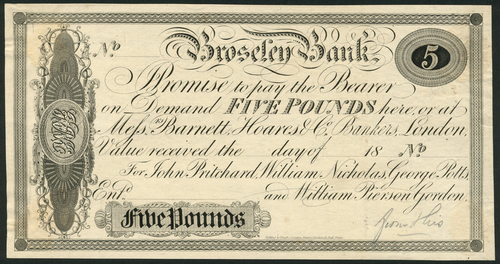 Broseley Bank.
No
5
I Promise to pay the Bearer
on Demand FIVE POUNDS here, or at
Messrs Barnett, Hoares & Co. Bankers, London.
Value received the day of 18 No
For John Pritchard, William Nicholas, George Potts
Entd. and William Pierson Gordon.
Five Pounds